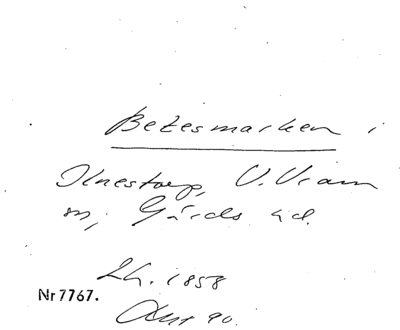 Betesmarken i
Ilnestorp, V. Vram
sn, Gärds hd.
Lh. 1858
Nr 7767.
Akt 90.